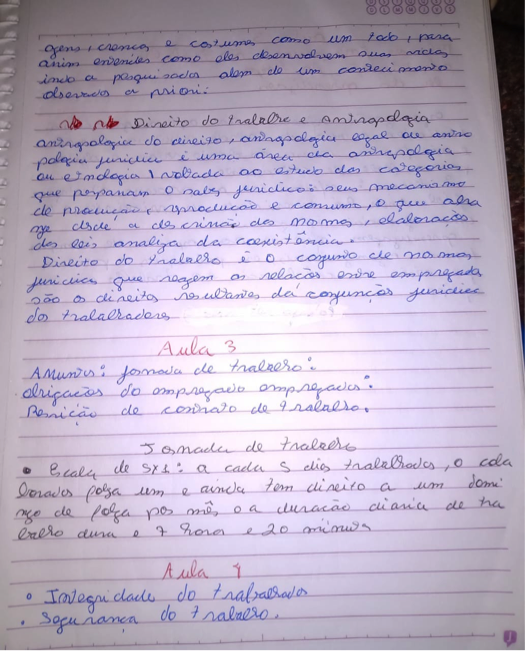 gens, crenças e costumes como um todo, para
assim entender como eles desenvolvem suas vidas
indo a pesquisados alem de um conhecimento
observados a priori.
Direito do trabalho e Antropologia
antropologia do direito, antropologia legal ou antro
pologia juridica é uma área da antropologia
ou etnologia voltada ao estudo das categorias
que perpanam o saber juridicos seus mecanismo
de produção, reprodução e consumo, o que abra
nge desde a descrinão das normas, elaboração
das leis analiza da coexistência.
Direito do trabalho é o conjunto de normas
juridicas que regem as relações entre empregados
são os direitos resultantes da conjunção juridica
dos trabalhadores
Aula 3
Assuntos: Jornada de trabalho:
obrigações do empregado empregador:
Rescição de contrato de trabalho.
Jornada de trabalho
• Escala de 5x1: a cada 5 dias trabalhados, o cola
borador folga um e ainda tem direito a um domi
ngo de folga por mês, o a duracão diaria de tra
balho dura e 7 horas e 20 minutos
Aula 4
• Integridade do trabalhador
• Segurança do trabalho.